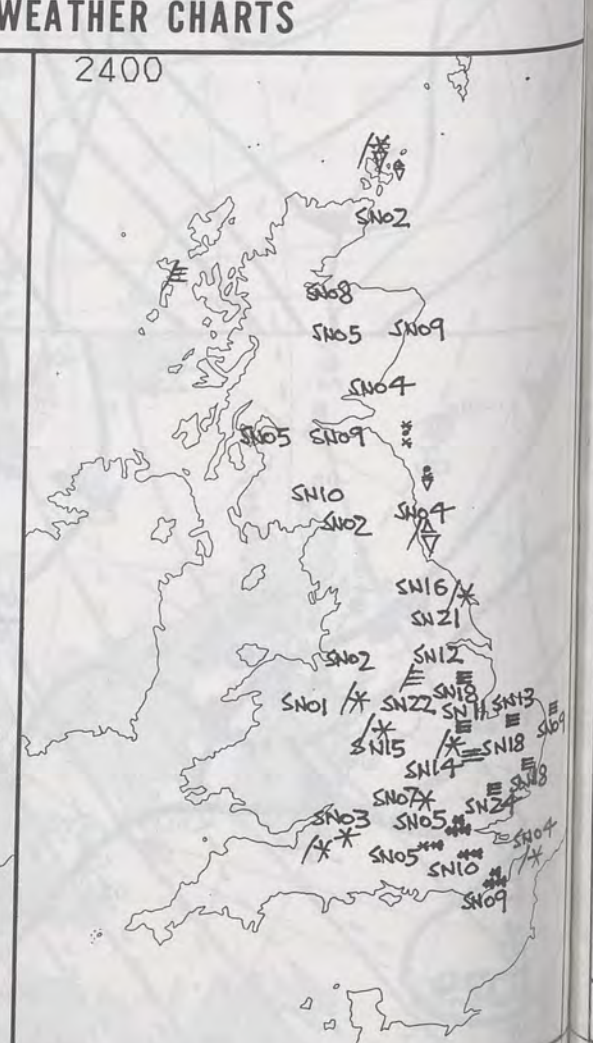 WEATHER CHARTS
2400
SN02
SN08
SN05 SN09
SN04
SN05 SN09
SN10
SN04
SN02
SN16
SN21
SN12
SN02
SN18
SN01 SN22 SN11 SN13
SN09
SN15 SN18
SN14
SN18
SN07 SN24
SN03 SN05
SN04
SN05
SN10
SN09